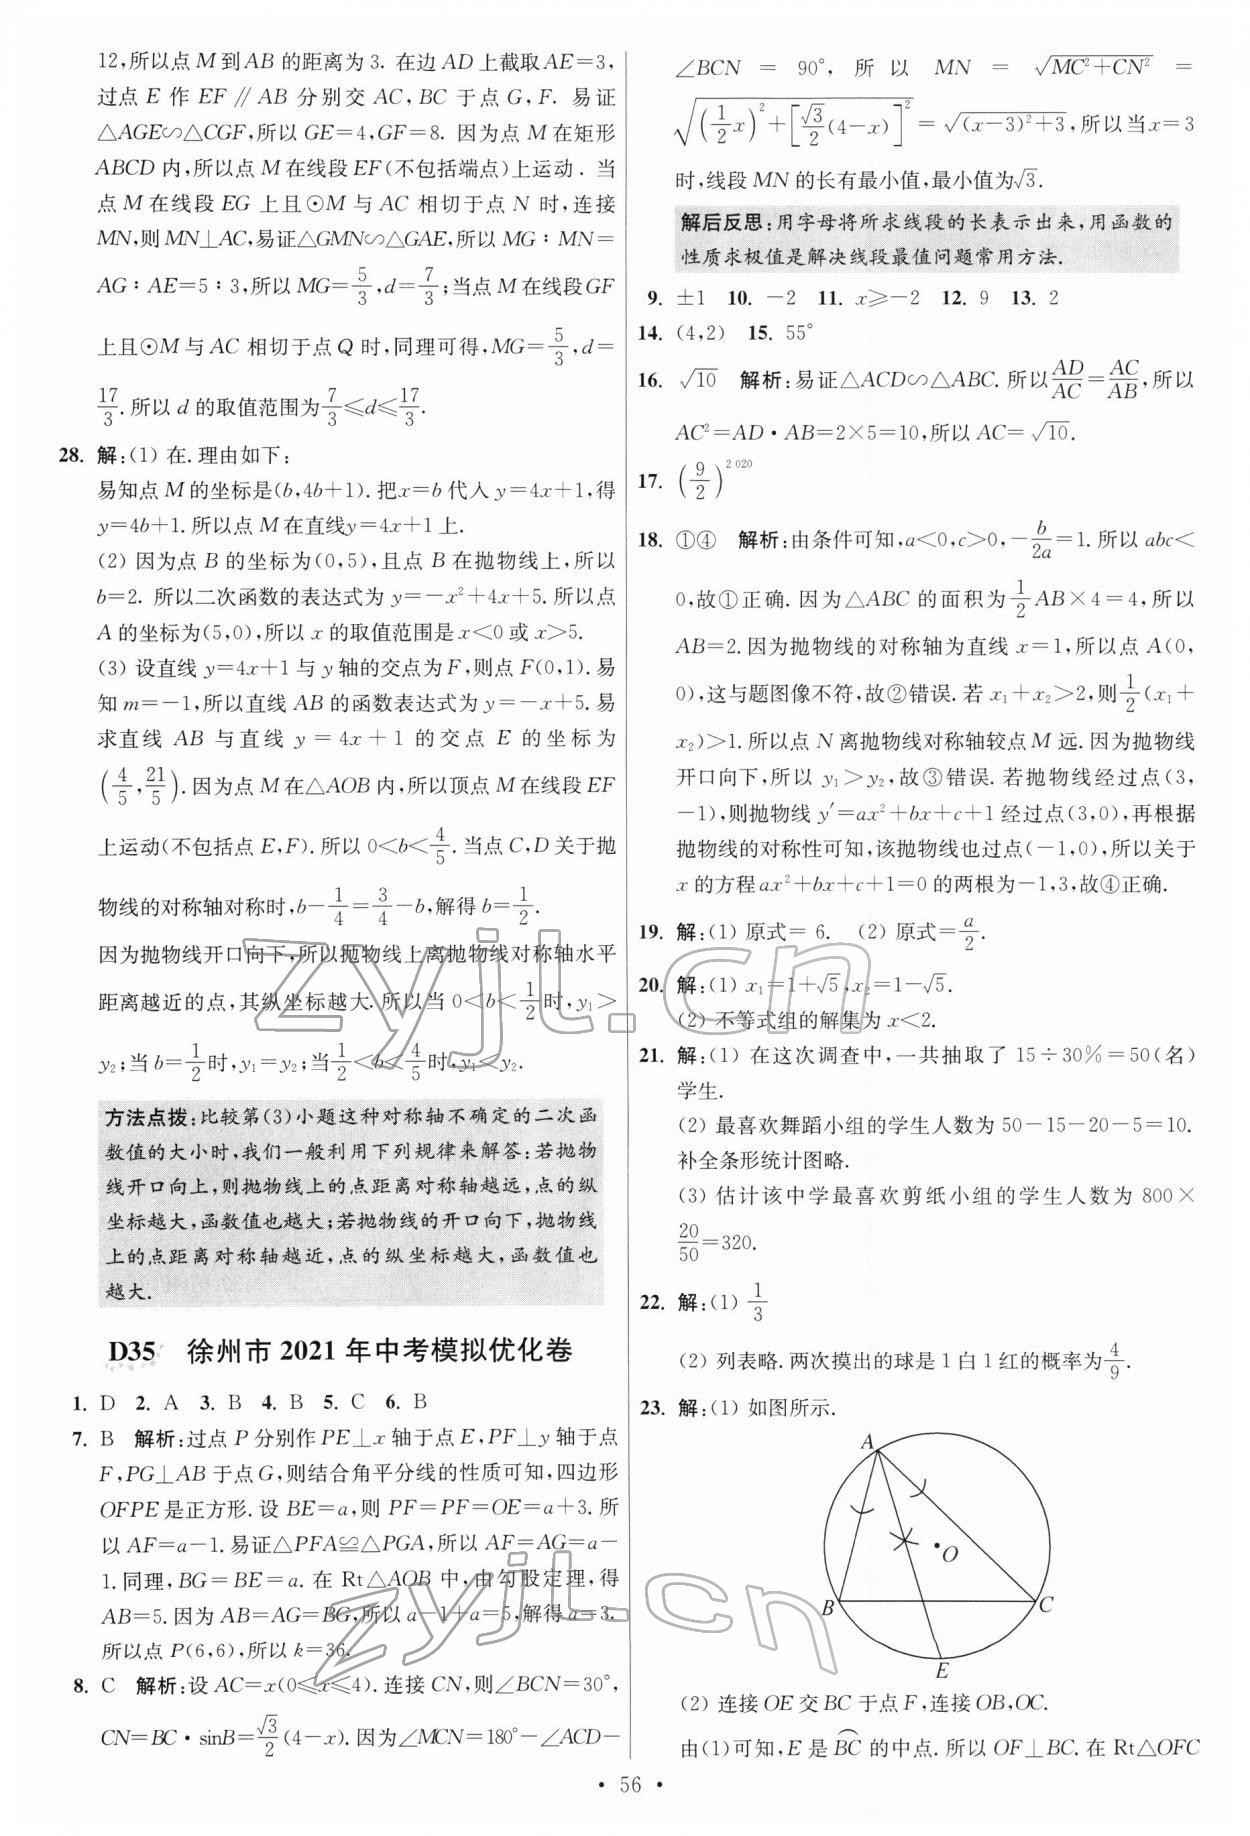 12,所以点 M 到 AB 的距离为 3. 在边 AD 上截取 AE=3,
过点 E 作 EF∥AB 分别交 AC,BC 于点 G,F. 易证
△AGE∽△CGF,所以 GE=4,GF=8. 因为点 M 在矩形
ABCD 内,所以点 M 在线段 EF(不包括端点)上运动. 当
点 M 在线段 EG 上且⊙M 与 AC 相切于点 N 时,连接
MN,则 MN⊥AC,易证△GMN∽△GAE,所以 MG∶MN=
AG∶AE=5∶3,所以 MG=5/3,d=7/3;当点 M 在线段 GF
上且⊙M 与 AC 相切于点 Q 时,同理可得,MG=5/3,d=
17/3.所以 d 的取值范围为7/3≤d≤17/3.
28. 解:(1) 在.理由如下:
易知点 M 的坐标是(b,4b+1).把x=b 代入 y=4x+1,得
y=4b+1.所以点 M 在直线y=4x+1 上.
(2) 因为点 B 的坐标为(0,5),且点 B 在抛物线上,所以
b=2. 所以二次函数的表达式为 y=-x²+4x+5.所以点
A 的坐标为(5,0),所以 x 的取值范围是x<0 或x>5.
(3) 设直线 y=4x+1 与 y 轴的交点为 F,则点 F(0,1). 易
知 m=-1,所以直线 AB 的函数表达式为 y=-x+5. 易
求直线 AB 与直线 y=4x+1 的交点 E 的坐标为
(4/5,21/5).因为点 M 在△AOB 内,所以顶点 M 在线段 EF
上运动(不包括点 E,F).所以 0<b<4/5.当点 C,D 关于抛
物线的对称轴对称时,b-1/4=3/4-b,解得 b=1/2.
因为抛物线开口向下,所以抛物线上离抛物线对称轴水平
距离越近的点,其纵坐标越大.所以当 0<b<1/2时,y₁>
y₂;当 b=1/2时,y₁=y₂;当1/2<b<4/5时,y₁<y₂.
方法点拨:比较第(3)小题这种对称轴不确定的二次函
数值的大小时,我们一般利用下列规律来解答:若抛物
线开口向上,则抛物线上的点距离对称轴越远,点的纵
坐标越大,函数值也越大;若抛物线的开口向下,抛物线
上的点距离对称轴越近,点的纵坐标越大,函数值也
越大.
D35 徐州市 2021 年中考模拟优化卷
1. D 2. A 3. B 4. B 5. C 6. B
7. B 解析:过点 P 分别作 PE⊥x 轴于点 E,PF⊥y 轴于点
F,PG⊥AB 于点 G,则结合角平分线的性质可知,四边形
OFPE 是正方形. 设 BE=a,则 PF=PF=OE=a+3. 所
以 AF=a-1. 易证△PFA≌△PGA,所以 AF=AG=a-
1.同理,BG=BE=a. 在 Rt△AOB 中,由勾股定理,得
AB=5. 因为 AB=AG=BG,所以 a-1+a=5,解得 a=3.
所以点 P(6,6),所以 k=36.
8. C 解析:设 AC=x(0≤x≤4).连接 CN,则∠BCN=30°,
CN=BC·sinB=√3/2(4-x).因为∠MCN=180°-∠ACD-
∠BCN = 90°, 所以 MN = √(MC²+CN²) =
√((1/2x)²+[√3/2(4-x)]²)=√((x-3)²+3),所以当x=3
时,线段 MN 的长有最小值,最小值为√3.
解后反思:用字母将所求线段的长表示出来,用函数的
性质求极值是解决线段最值问题常用方法.
9. ±1 10. -2 11. x≥-2 12. 9 13. 2
14. (4,2) 15. 55°
16. √10 解析:易证△ACD∽△ABC.所以AD/AC=AC/AB,所以
AC²=AD·AB=2×5=10,所以 AC=√10.
17. (9/2)^2 020
18. ①④ 解析:由条件可知,a<0,c>0,-b/2a=1.所以 abc<
0,故①正确. 因为△ABC 的面积为1/2AB×4=4,所以
AB=2.因为抛物线的对称轴为直线 x=1,所以点 A(0,
0),这与题图像不符,故②错误.若 x₁+x₂>2,则1/2(x₁+
x₂)>1.所以点 N 离抛物线对称轴较点 M 远. 因为抛物线
开口向下,所以 y₁>y₂,故③错误. 若抛物线经过点(3,
-1),则抛物线 y′=ax²+bx+c+1 经过点(3,0),再根据
抛物线的对称性可知,该抛物线也过点(-1,0),所以关于
x 的方程ax²+bx+c+1=0 的两根为-1,3,故④正确.
19. 解:(1) 原式= 6. (2) 原式=a/2.
20. 解:(1) x₁=1+√5,x₂=1-√5.
(2) 不等式组的解集为 x<2.
21. 解:(1) 在这次调查中,一共抽取了 15÷30%=50(名)
学生.
(2) 最喜欢舞蹈小组的学生人数为 50-15-20-5=10.
补全条形统计图略.
(3) 估计该中学最喜欢剪纸小组的学生人数为 800×
20/50=320.
22. 解:(1) 1/3
(2) 列表略.两次摸出的球是 1 白 1 红的概率为4/9.
23. 解:(1) 如图所示.
A
O
B
C
E
(2) 连接 OE 交 BC 于点 F,连接 OB,OC.
由(1)可知,E 是B͡C的中点.所以 OF⊥BC. 在 Rt△OFC
· 56 ·
zyjl.cn
zyjl.cn